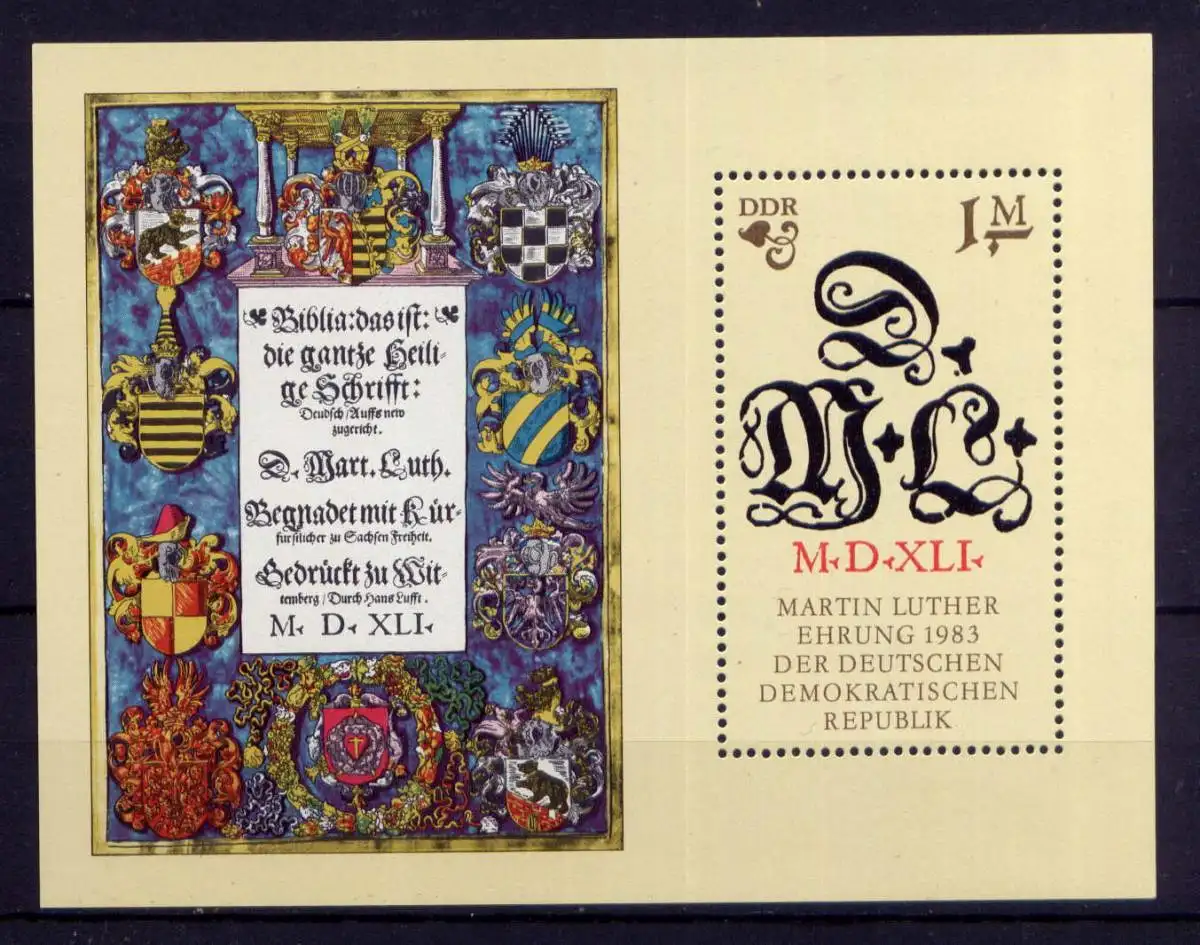 Biblia: das ist:
die gantze Heili-
ge Schrifft:
Deudsch / Auffs new
zugericht.
D. Mart. Luth.
Begnadet mit Kür-
fürstlicher zu Sachsen Freiheit.
Gedrückt zu Wit-
temberg / Durch Hans Lufft.
M. D. XLI.
DDR
1 M
D.
M. L.
M. D. XLI.
MARTIN LUTHER
EHRUNG 1983
DER DEUTSCHEN
DEMOKRATISCHEN
REPUBLIK